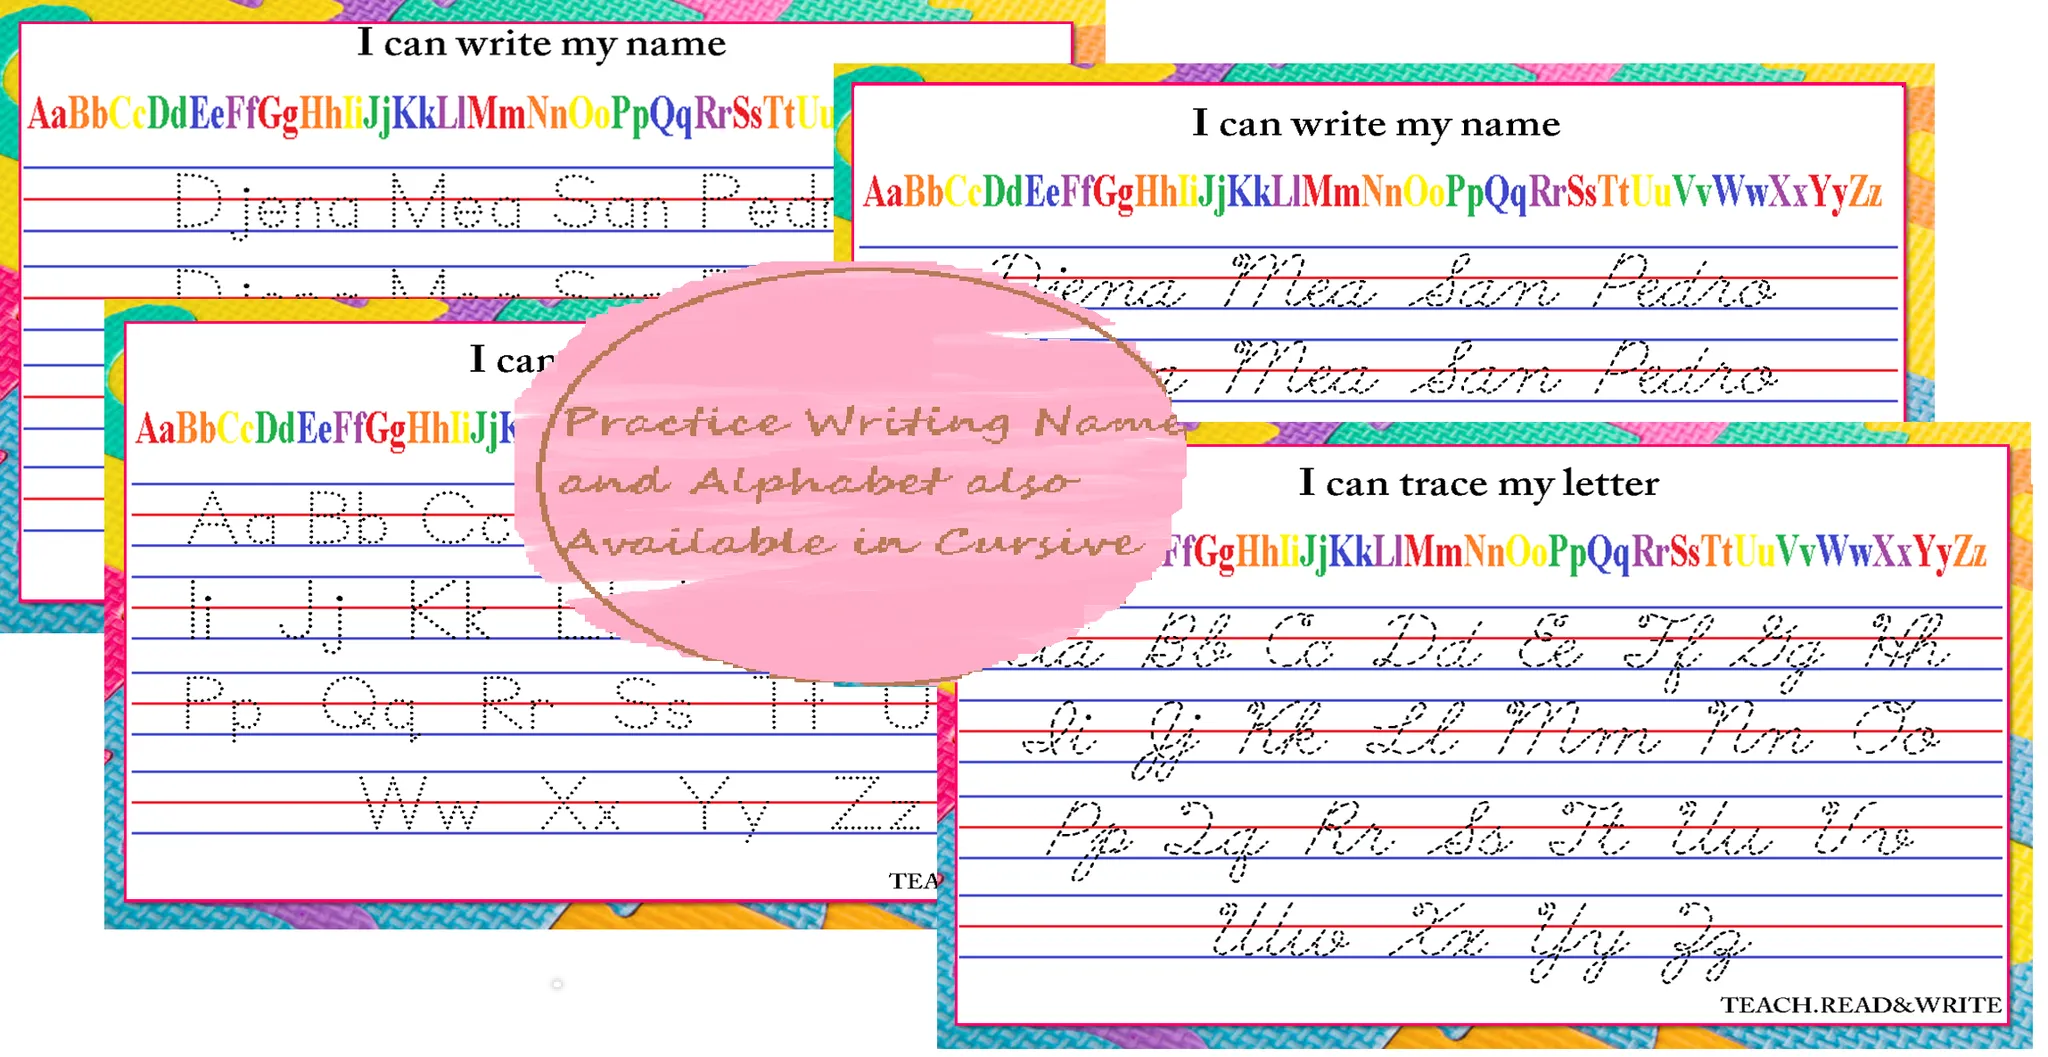 I can write my name
AaBbCcDdEeFfGgHhIiJjKkLlMmNnOoPpQqRrSsTtUu
Djena Mea San Pedr
Djena Mea San
I can write my name
AaBbCcDdEeFfGgHhIiJjKkLlMmNnOoPpQqRrSsTtUuVvWwXxYyZz
Djena Mea San Pedro
a Mea San Pedro
I can
AaBbCcDdEeFfGgHhIiJjK
Aa Bb Cc
Ii Jj Kk Ll
Pp Qq Rr Ss Tt U
Ww Xx Yy Zz
TEA
Practice Writing Name
and Alphabet also
Available in Cursive
I can trace my letter
FfGgHhIiJjKkLlMmNnOoPpQqRrSsTtUuVvWwXxYyZz
Aa Bb Cc Dd Ee Ff Gg Hh
Ii Jj Kk Ll Mm Nn Oo
Pp Qq Rr Ss Tt Uu Vv
Ww Xx Yy Zz
TEACH.READ&WRITE